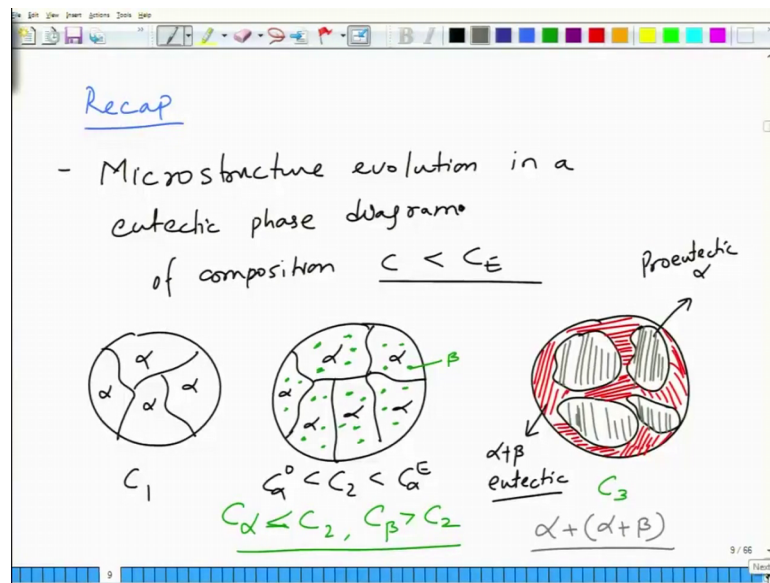 File Edit View Insert Actions Tools Help
B I
Recap
- Microstructure evolution in a
eutectic phase diagram
of composition C < C_E
Proeutectic
α
α α α α
α α α α α β
α+β
eutectic
C_1
C_α^0 < C_2 < C_α^E
C_3
C_α ≤ C_2, C_β > C_2
α+(α+β)
9 / 66
9
Next